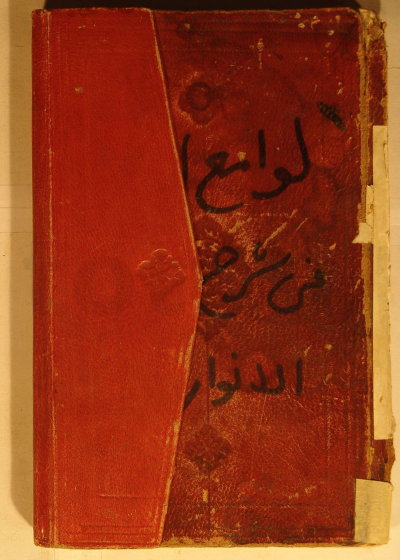 لوامع ا
في شرح
الانوار